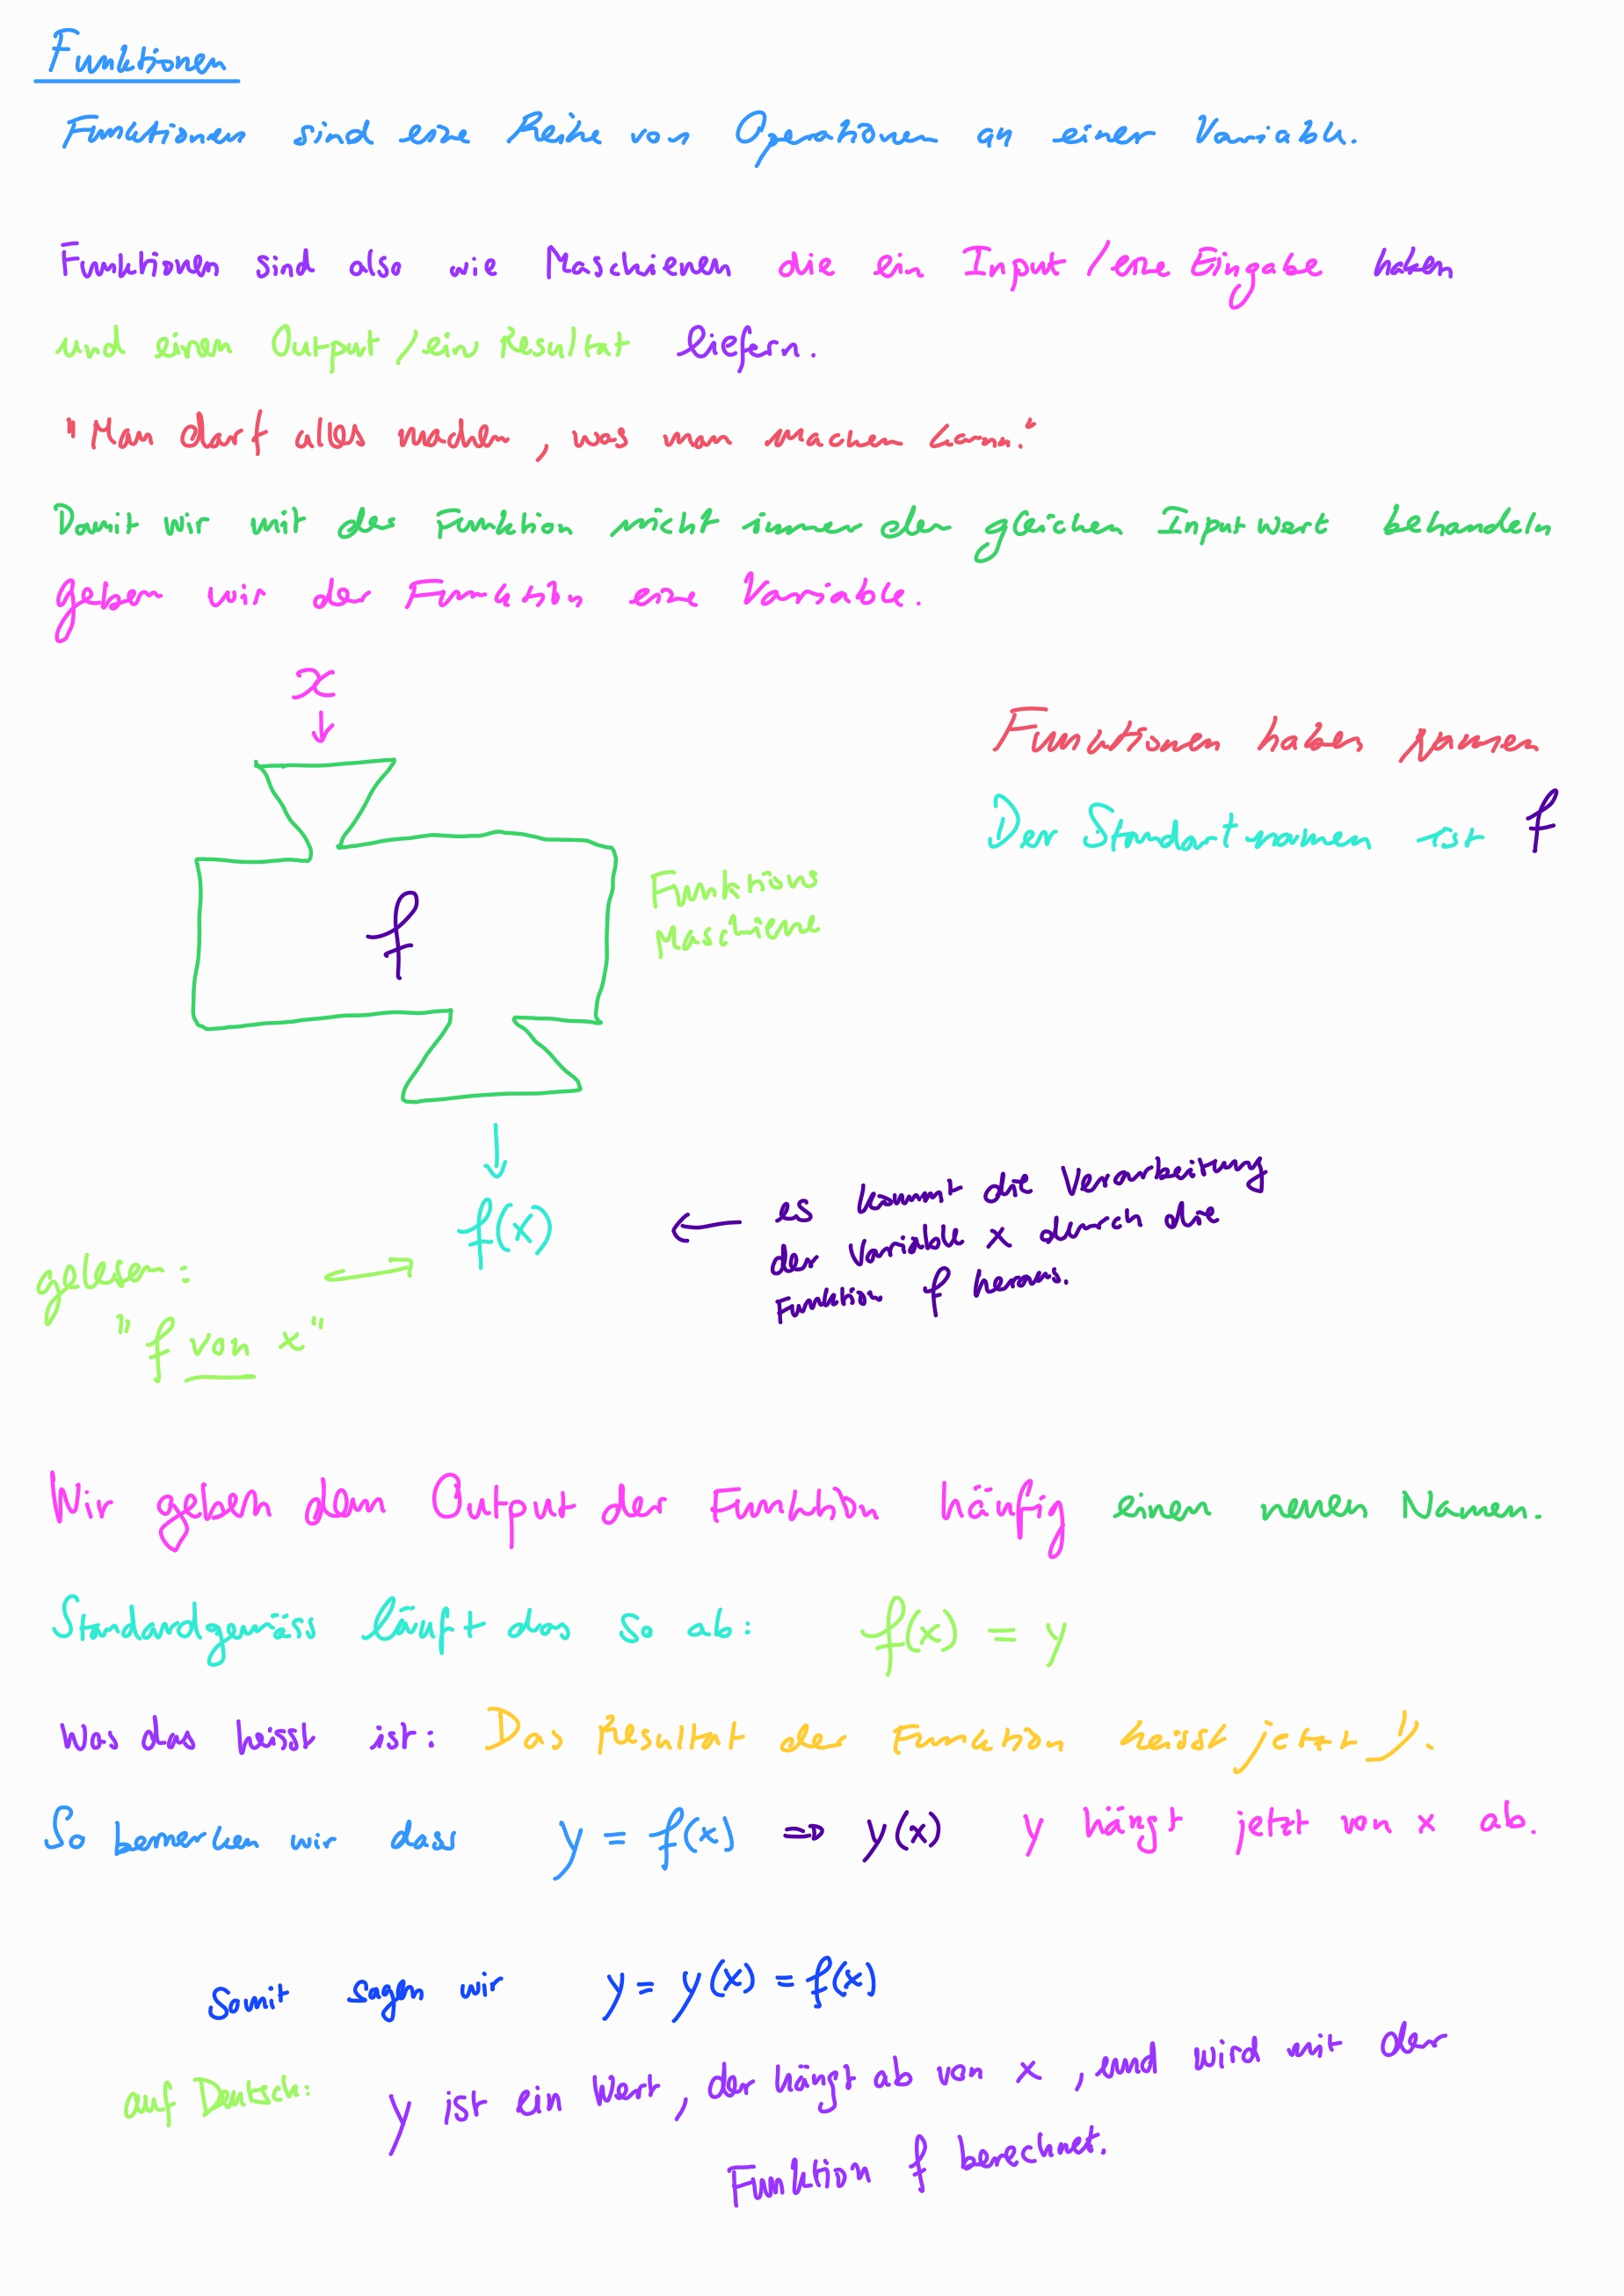 Funktionen
Funktionen sind eine Reihe von Operationen an einer Variable.
Funktionen sind also wie Maschienen die ein Input / eine Eingabe haben
und einen Output / ein Resultat liefern.
"Man darf alles machen, was man machen kann."
Damit wir mit der Funktion nicht immer den gleichen Inputwert behandeln
geben wir der Funktion eine Variable.
x
Funktionen haben
Der Standartnamen ist f
f
Funktions
Maschiene
f(x)
es kommt die Verarbeitung
der Variable x durch die
Funktion f heraus.
gelesen:
"f von x"
Wir geben dem Output der Funktion häufig einen neuen Namen.
Standardgemäss läuft das so ab: f(x) = y
Was das heisst ist: Das Resultat der Funktion heisst jetzt y.
So bemerken wir dass y = f(x) ⇒ y(x) y hängt jetzt von x ab.
Somit sagen wir y = y(x) = f(x)
auf Deutsch: y ist ein Wert, der hängt ab von x, und wird mit der
Funktion f berechnet.